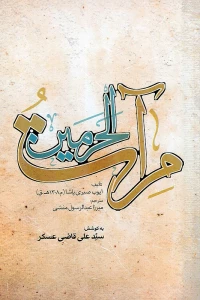 مرآت الحرمین
تألیف
ایوب صبری پاشا (م ۱۳۰۸ هـ ق)
مترجم
میرزا عبدالرسول منشی
به کوشش
سید علی قاضی عسکر